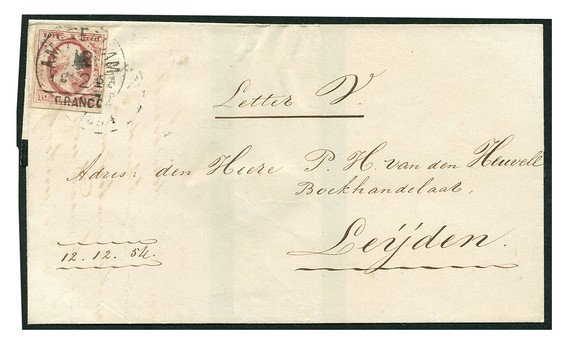 AMSTERDAM
FRANCO
Letter V.
Adres: den Heere P. H. van den Heuvell
Boekhandelaar,
Leijden.
12. 12. 54.